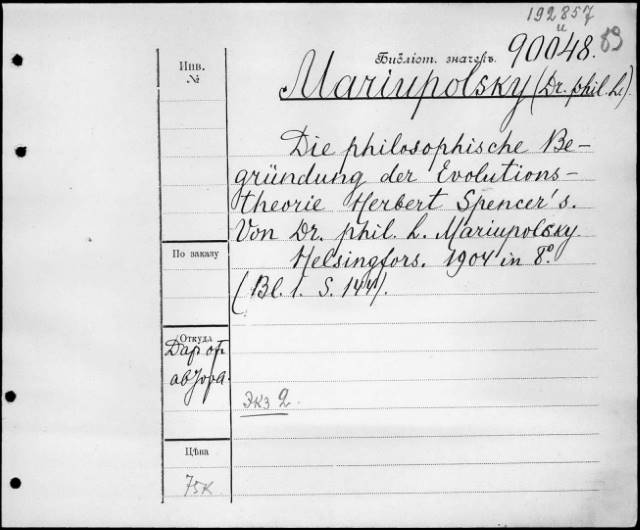 192857
и
Библіот. значекъ. 90048. 89
Инв.
№
Mariupolsky (Dr. phil. L.).
Die philosophische Be-
gründung der Evolutions-
theorie Herbert Spencer's.
Von Dr. phil. L. Mariupolsky.
Helsingfors. 1904 in 8°.
(Bl. 1. S. 144).
По заказу
Откуда
Дар от
автора.
Экз 2.
Цѣна
75к